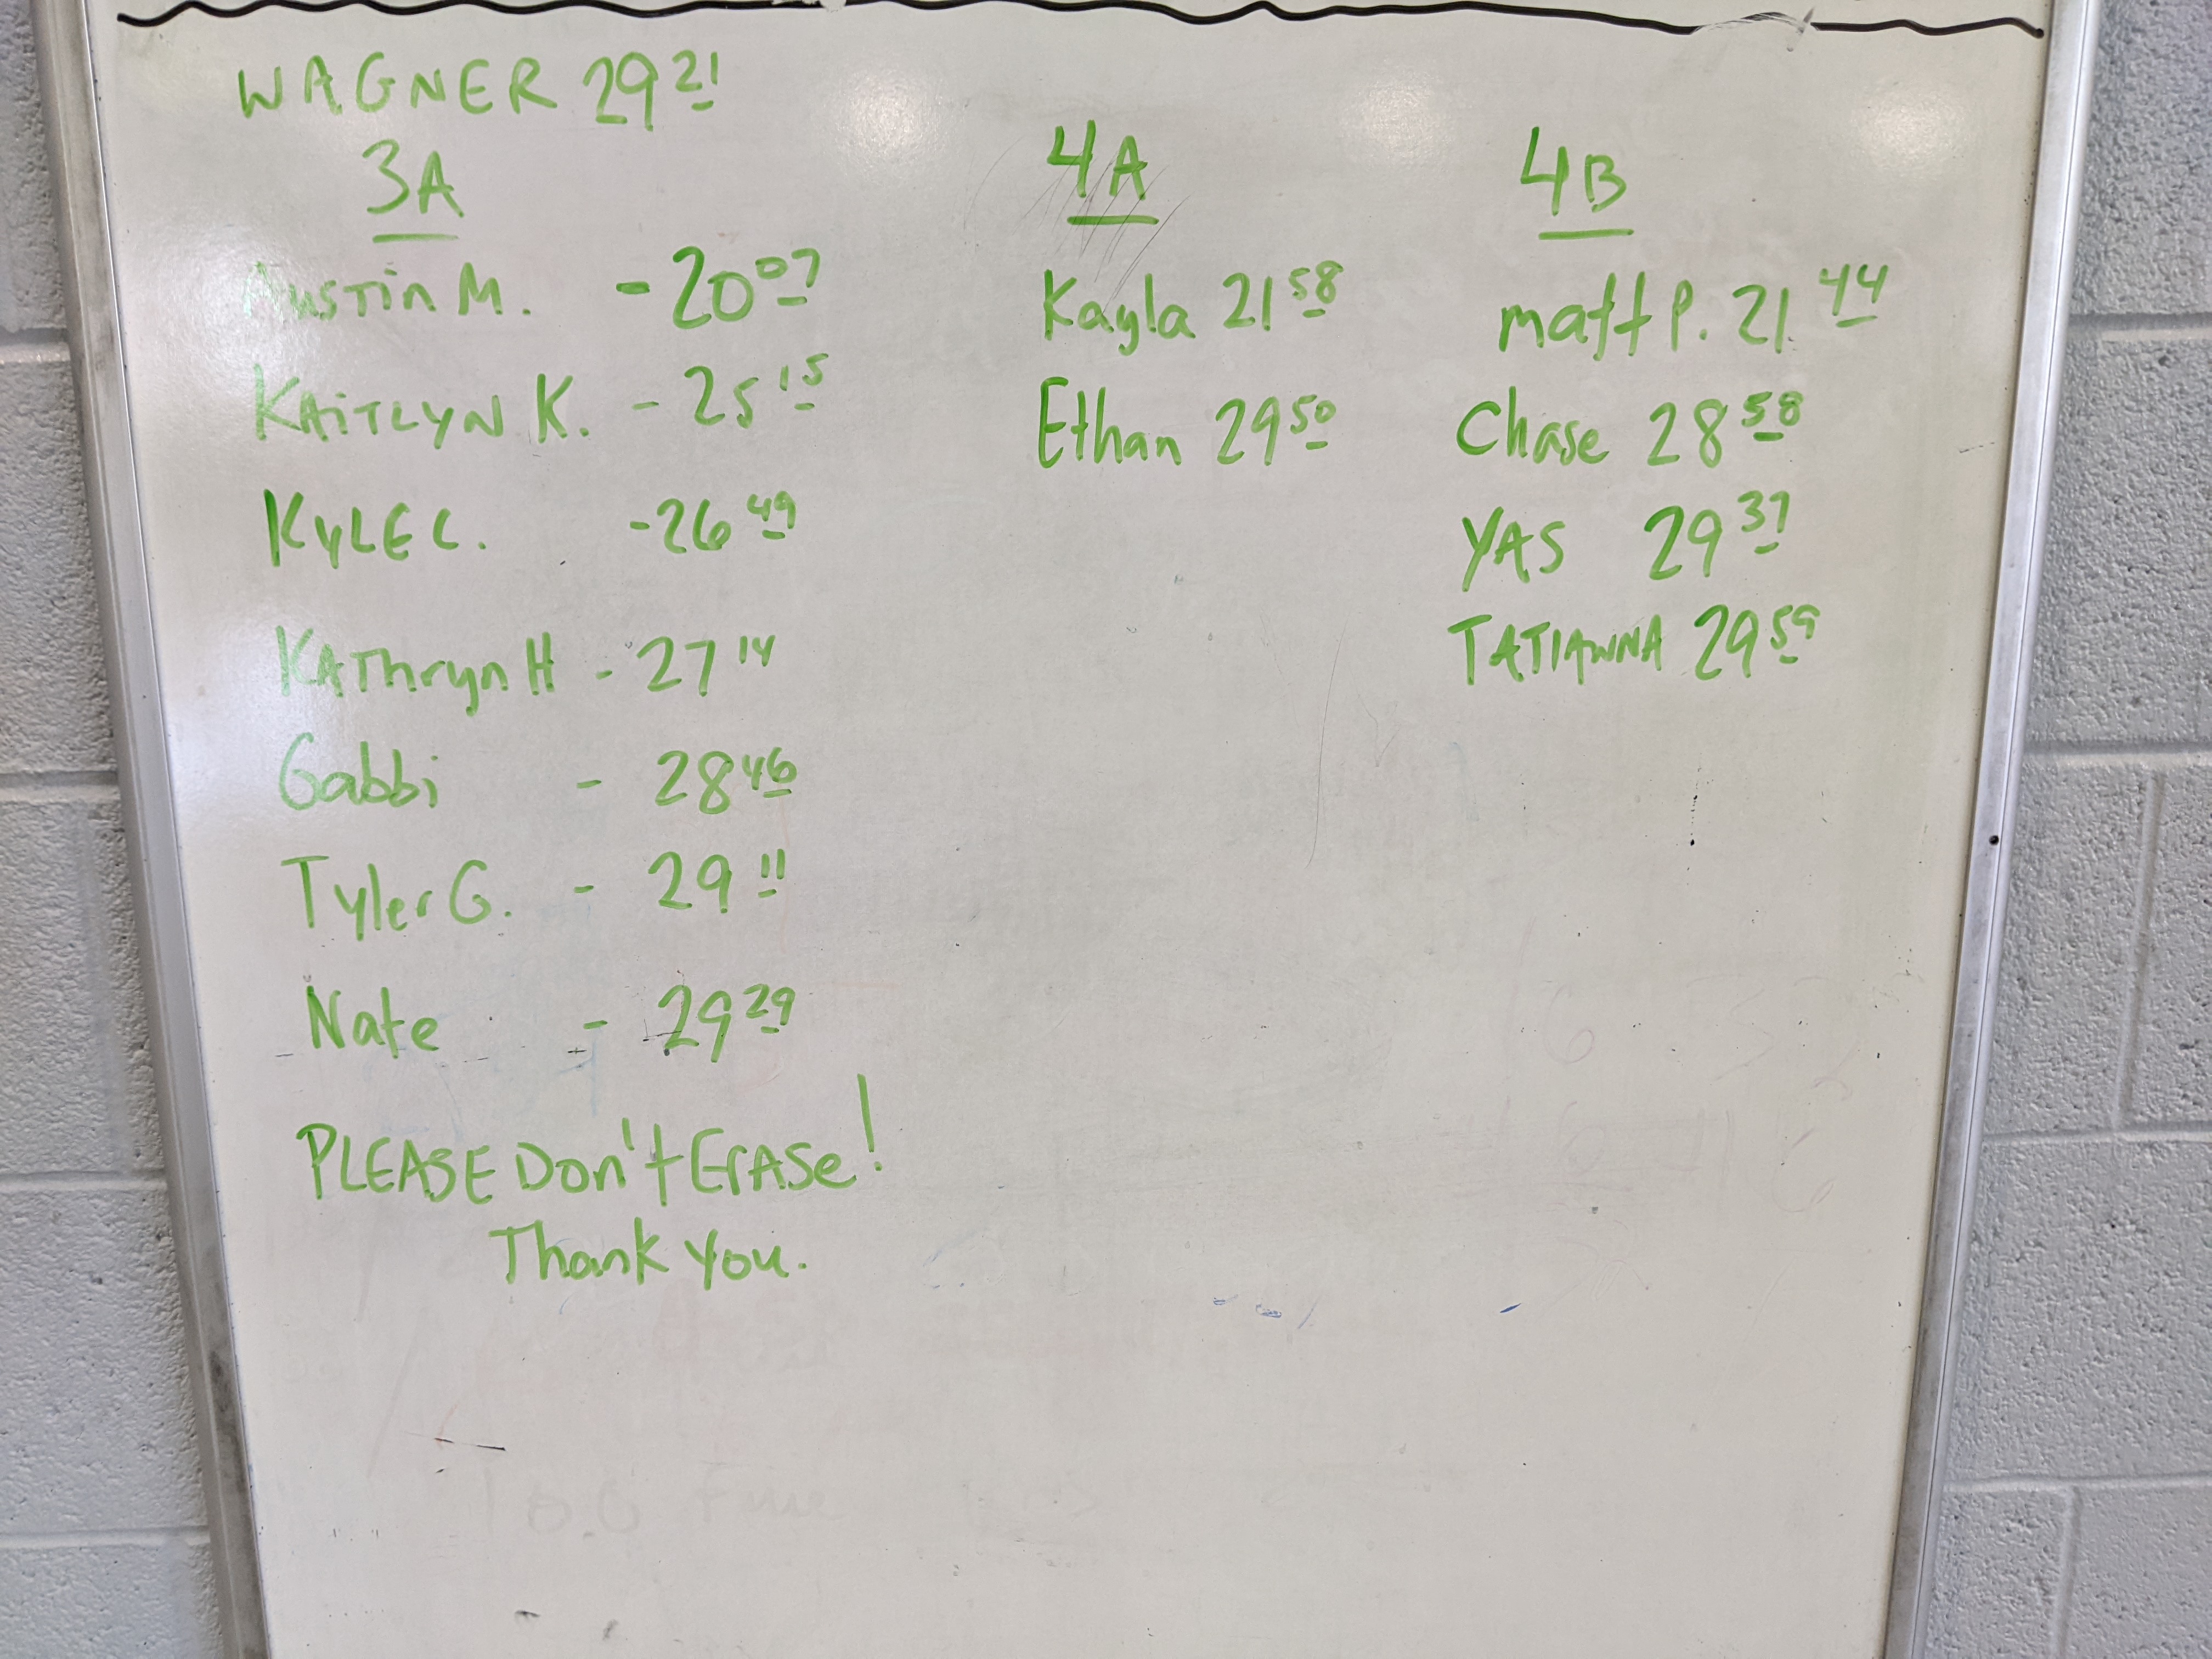 WAGNER 29 21
3A
Austin M. - 20 07
KAiTLYN K. - 25 15
KYLE C. - 26 49
KAThryn H - 27 14
Gabbi - 28 46
Tyler G. - 29 11
Nate - 29 29
PLEASE Don't ErASe!
Thank you.
4A
Kayla 21 58
Ethan 29 50
4B
matt P. 21 44
Chase 28 58
YAS 29 37
TATIANNA 29 59